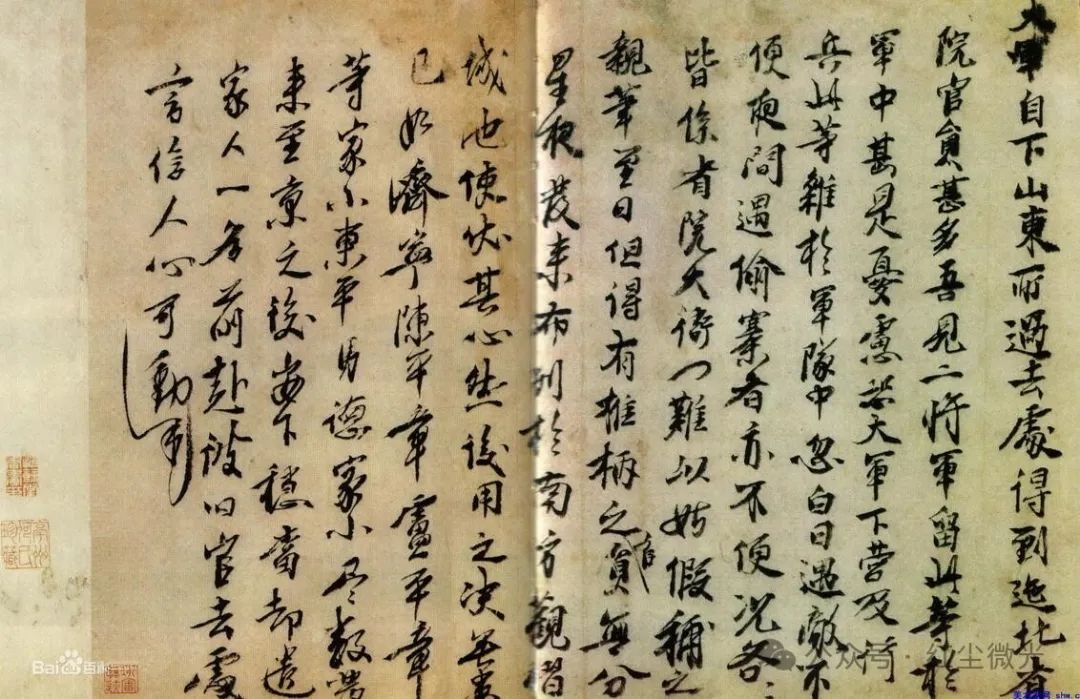 大軍自下山東所過去處得到迤北省
院官員甚多吾見二將軍留此等於
軍中甚是憂慮恐大軍下營及行
兵此等雜於軍隊中忽白日遇敵不
便夜間遇偷寨者亦不便況各
皆係省院大衙門難以姑假補之
親筆至日但得有椎柄之員官無分
星夜發來布列於南方觀
城池使伏其心然後用之決無患
已如濟寧陳平章盧平章
等家小東平馬德家小尽數發
來至京之後安下穩當却遣
家人一名前赴彼旧官去處
言信人心可動
Bai百科
公众号·红尘微光